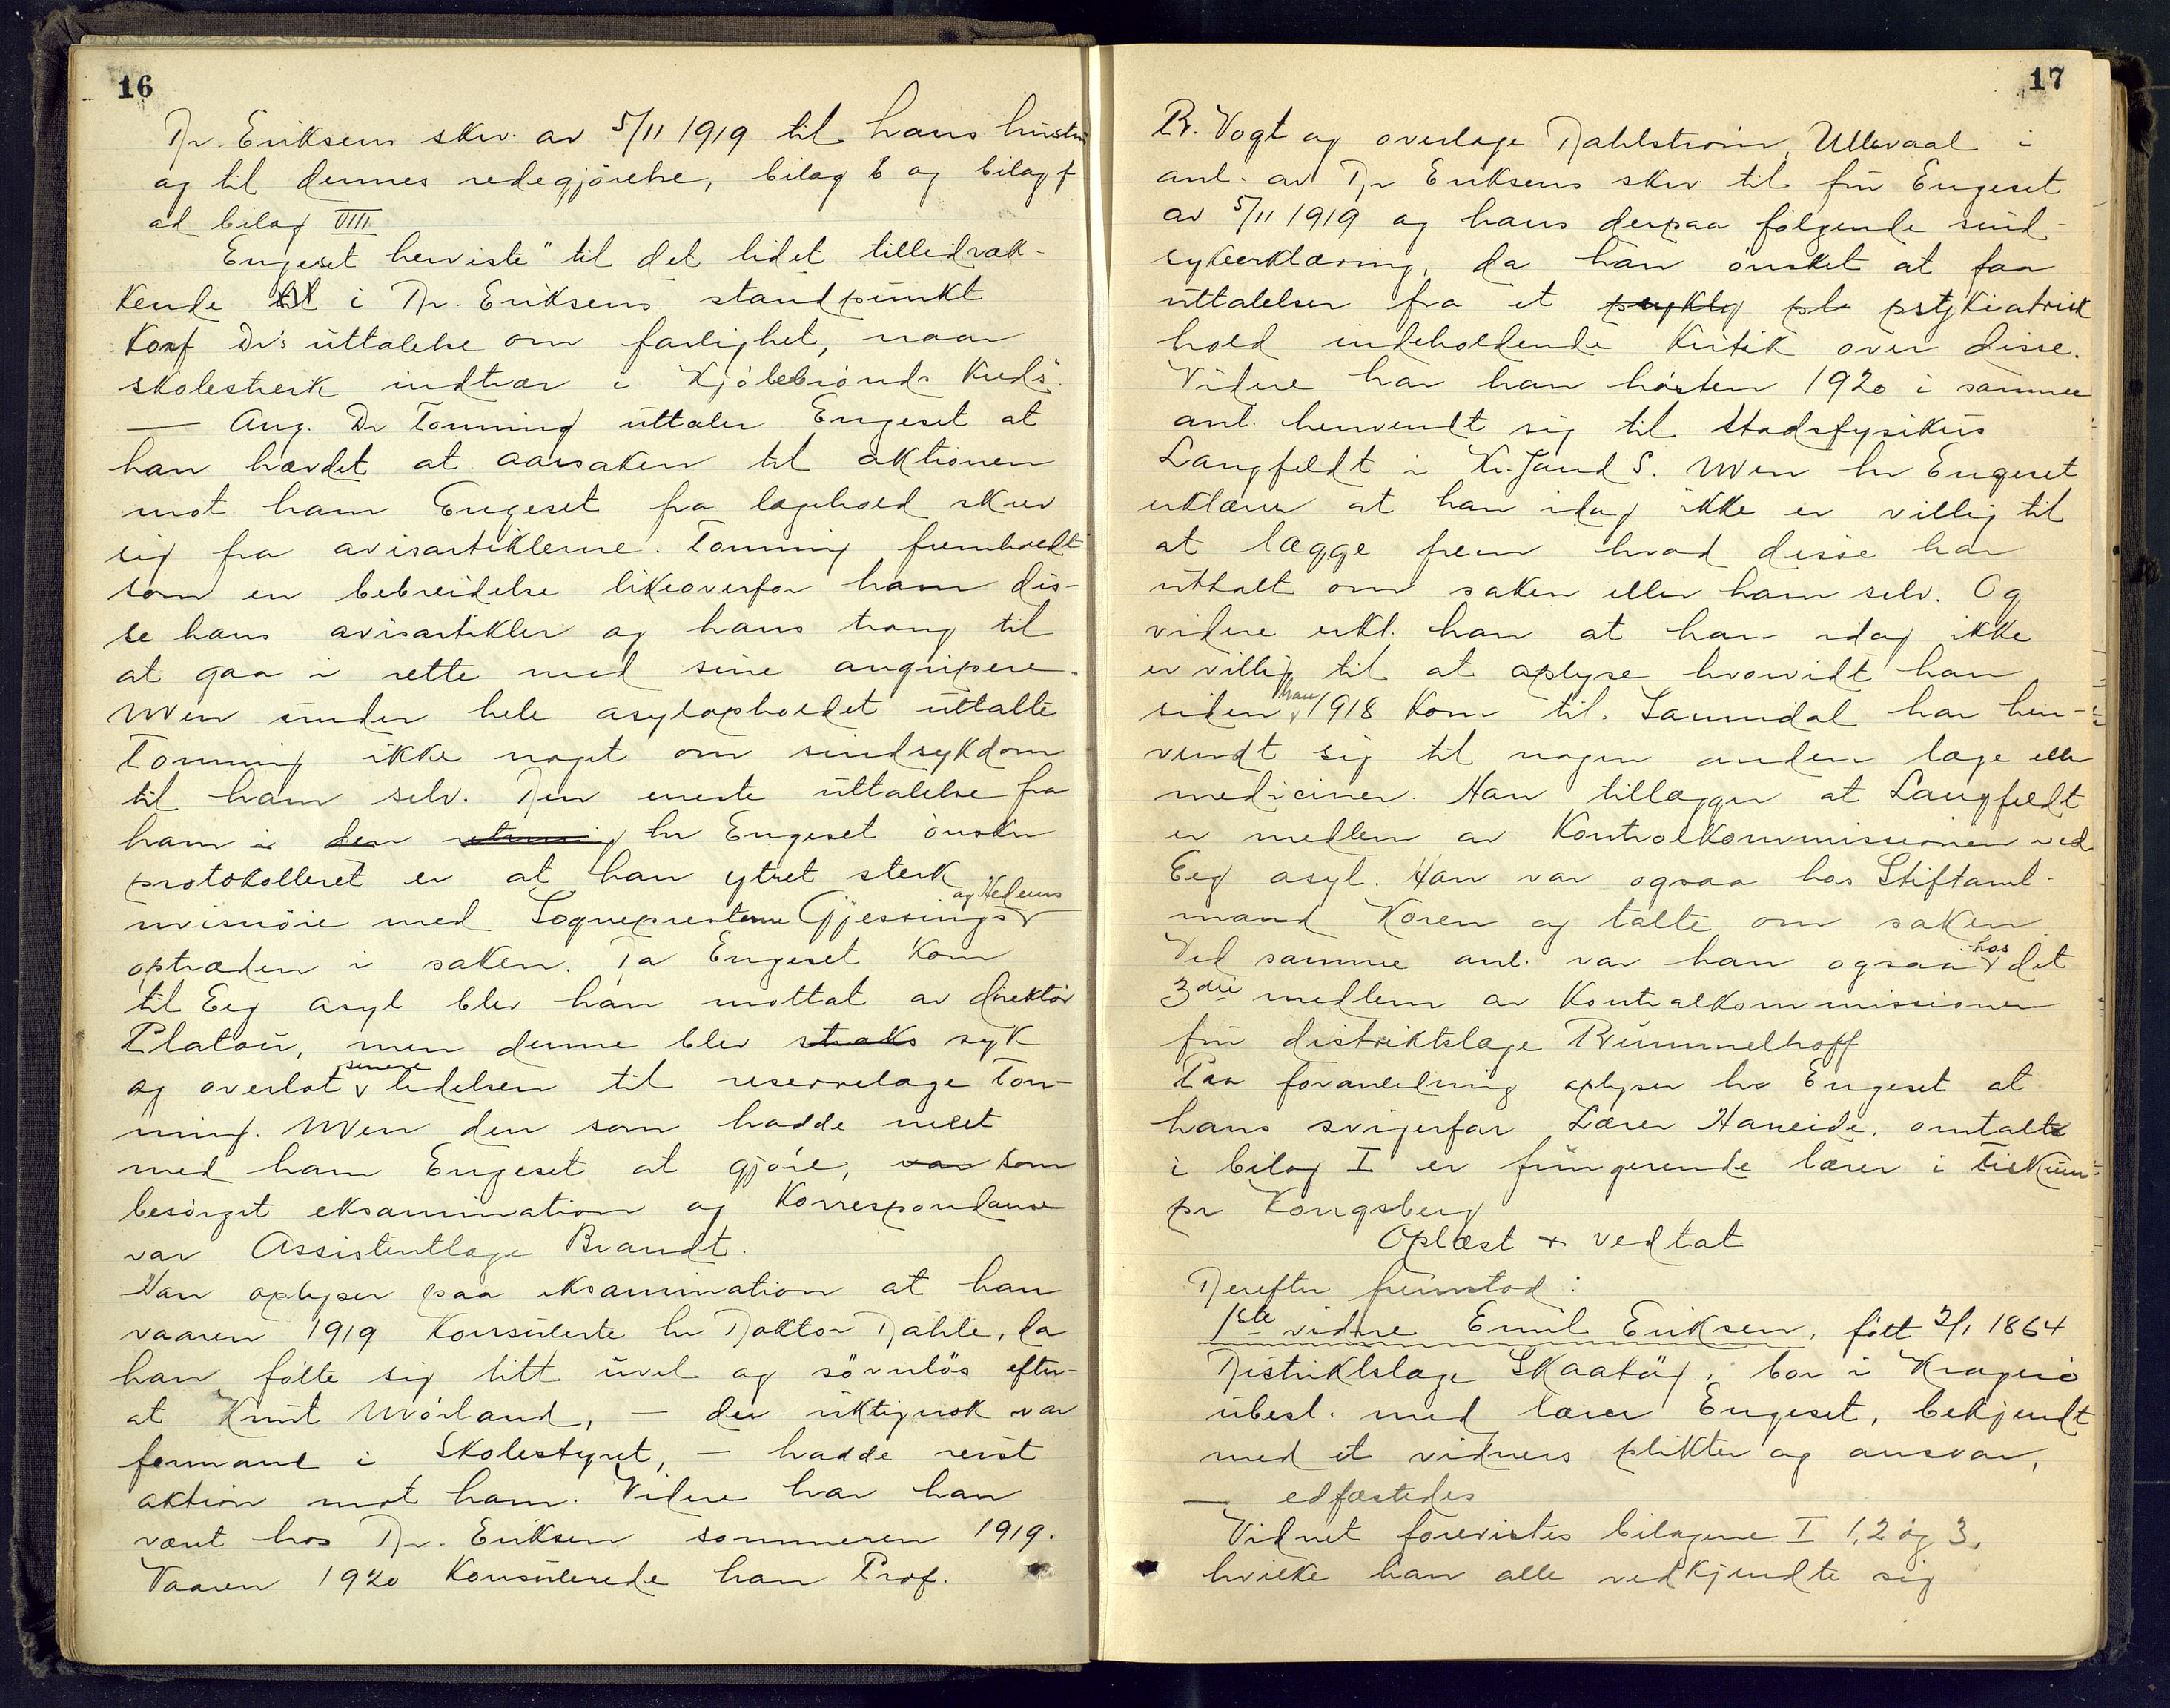 16
Dr. Eriksens skr. av 5/11 1919 til hans hustru
og til dennes redegjörelse, bilag 6 og bilag f
ad bilag VIII
Engeset henviste" til det lidet tillidvæk-
kende i Dr. Eriksens standpunkt
Konf Dr's uttalelse om farlighet, naar
skolestreik indtrær i Kjölebrönds Kreds.
— Ang. Dr Tonning uttaler Engeset at
han hævdet at aarsaken til aktionen
mot ham Engeset fra lægehold skrev
sig fra avisartiklerne. Tonning fremholdt
som en bebreidelse likeoverfor ham dis-
se hans avisartikler og hans trang til
at gaa i rette med sine angripere.
Men under hele asylopholdet uttalte
Tonning ikke noget om sindsykdom
til ham selv. Den eneste uttalelse fra
ham i den hr Engeset önsker
protokolleret er at han ytret sterk
misnöie med Sogneprestene Gjessings og Hedems
optræden i saken. Da Engeset kom
til Eeg asyl blev han mottat av direktör
Platou, men denne blev straks syk
og overlot senere ledelsen til reservelæge Ton-
ning. Men den som hadde mest
med ham Engeset at gjöre, var som
besörget eksamination og Korrespondanse
var Assistentlæge Brandt.
Han oplyser paa eksamination at han
vaaren 1919 Konsulerte hr Doktor Dahle, da
han fölte sig litt uvel og sövnlös efter-
at Knut Mörland, — der riktignok var
formand i Skolestyret, — hadde reist
aktion mot ham. Videre har han
været hos Dr. Eriksen sommeren 1919.
Vaaren 1920 Konsulerede han Prof.
17
R. Vogt og overlæge Dahlström, Ullevaal i
anl. av Dr Eriksens skr til fru Engeset
av 5/11 1919 og hans derpaa fölgende sind-
sykeerklæring, da han önsket at faa
uttalelser fra et psykiatrisk
hold indeholdende Kritik over disse.
Videre har han hösten 1920 i samme
anl. henvendt sig til Stadsfysikus
Langfeldt i Kr.sand S. Men hr Engeset
erklærer at han idag ikke er villig til
at lægge frem hvad disse har
uttalt om saken eller ham selv. Og
videre erkl. han at han idag ikke
er villig til at oplyse hvorvidt han
siden han 1918 kom til Sannidal har hen-
vendt sig til nogen anden læge eller
mediciner. Han tillægger at Langfeldt
er medlem av Kontrolkommissionen ved
Eeg asyl. Han var ogsaa hos Stiftamt-
mand Koren og talte om saken.
Ved samme anl. var han ogsaa hos det
3die medlem av Kontrolkommissionen
fru distriktslæge Rummelhoff
Paa foranledning oplyser hr Engeset at
hans svigerfar Lærer Haneide, omtalt
i bilag I er fungerende lærer i
pr Kongsberg
Oplæst & vedtat
Derefter fremstod:
1ste vidne Emil Eriksen, födt 2/1 1864
Distriktslæge Skaatöy, bor i Kragerö
ubesl. med lærer Engeset, bekjendt
med et vidnes plikter og ansvar,
— edfæstedes
Vidnet forevistes bilagene I 1, 2 og 3,
hvilke han alle vedkjendte sig